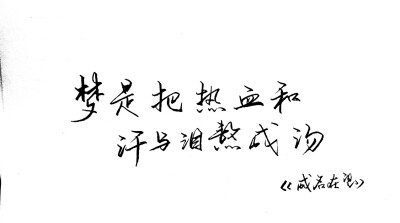 梦是把热血和
汗与泪熬成汤
《成名在望》